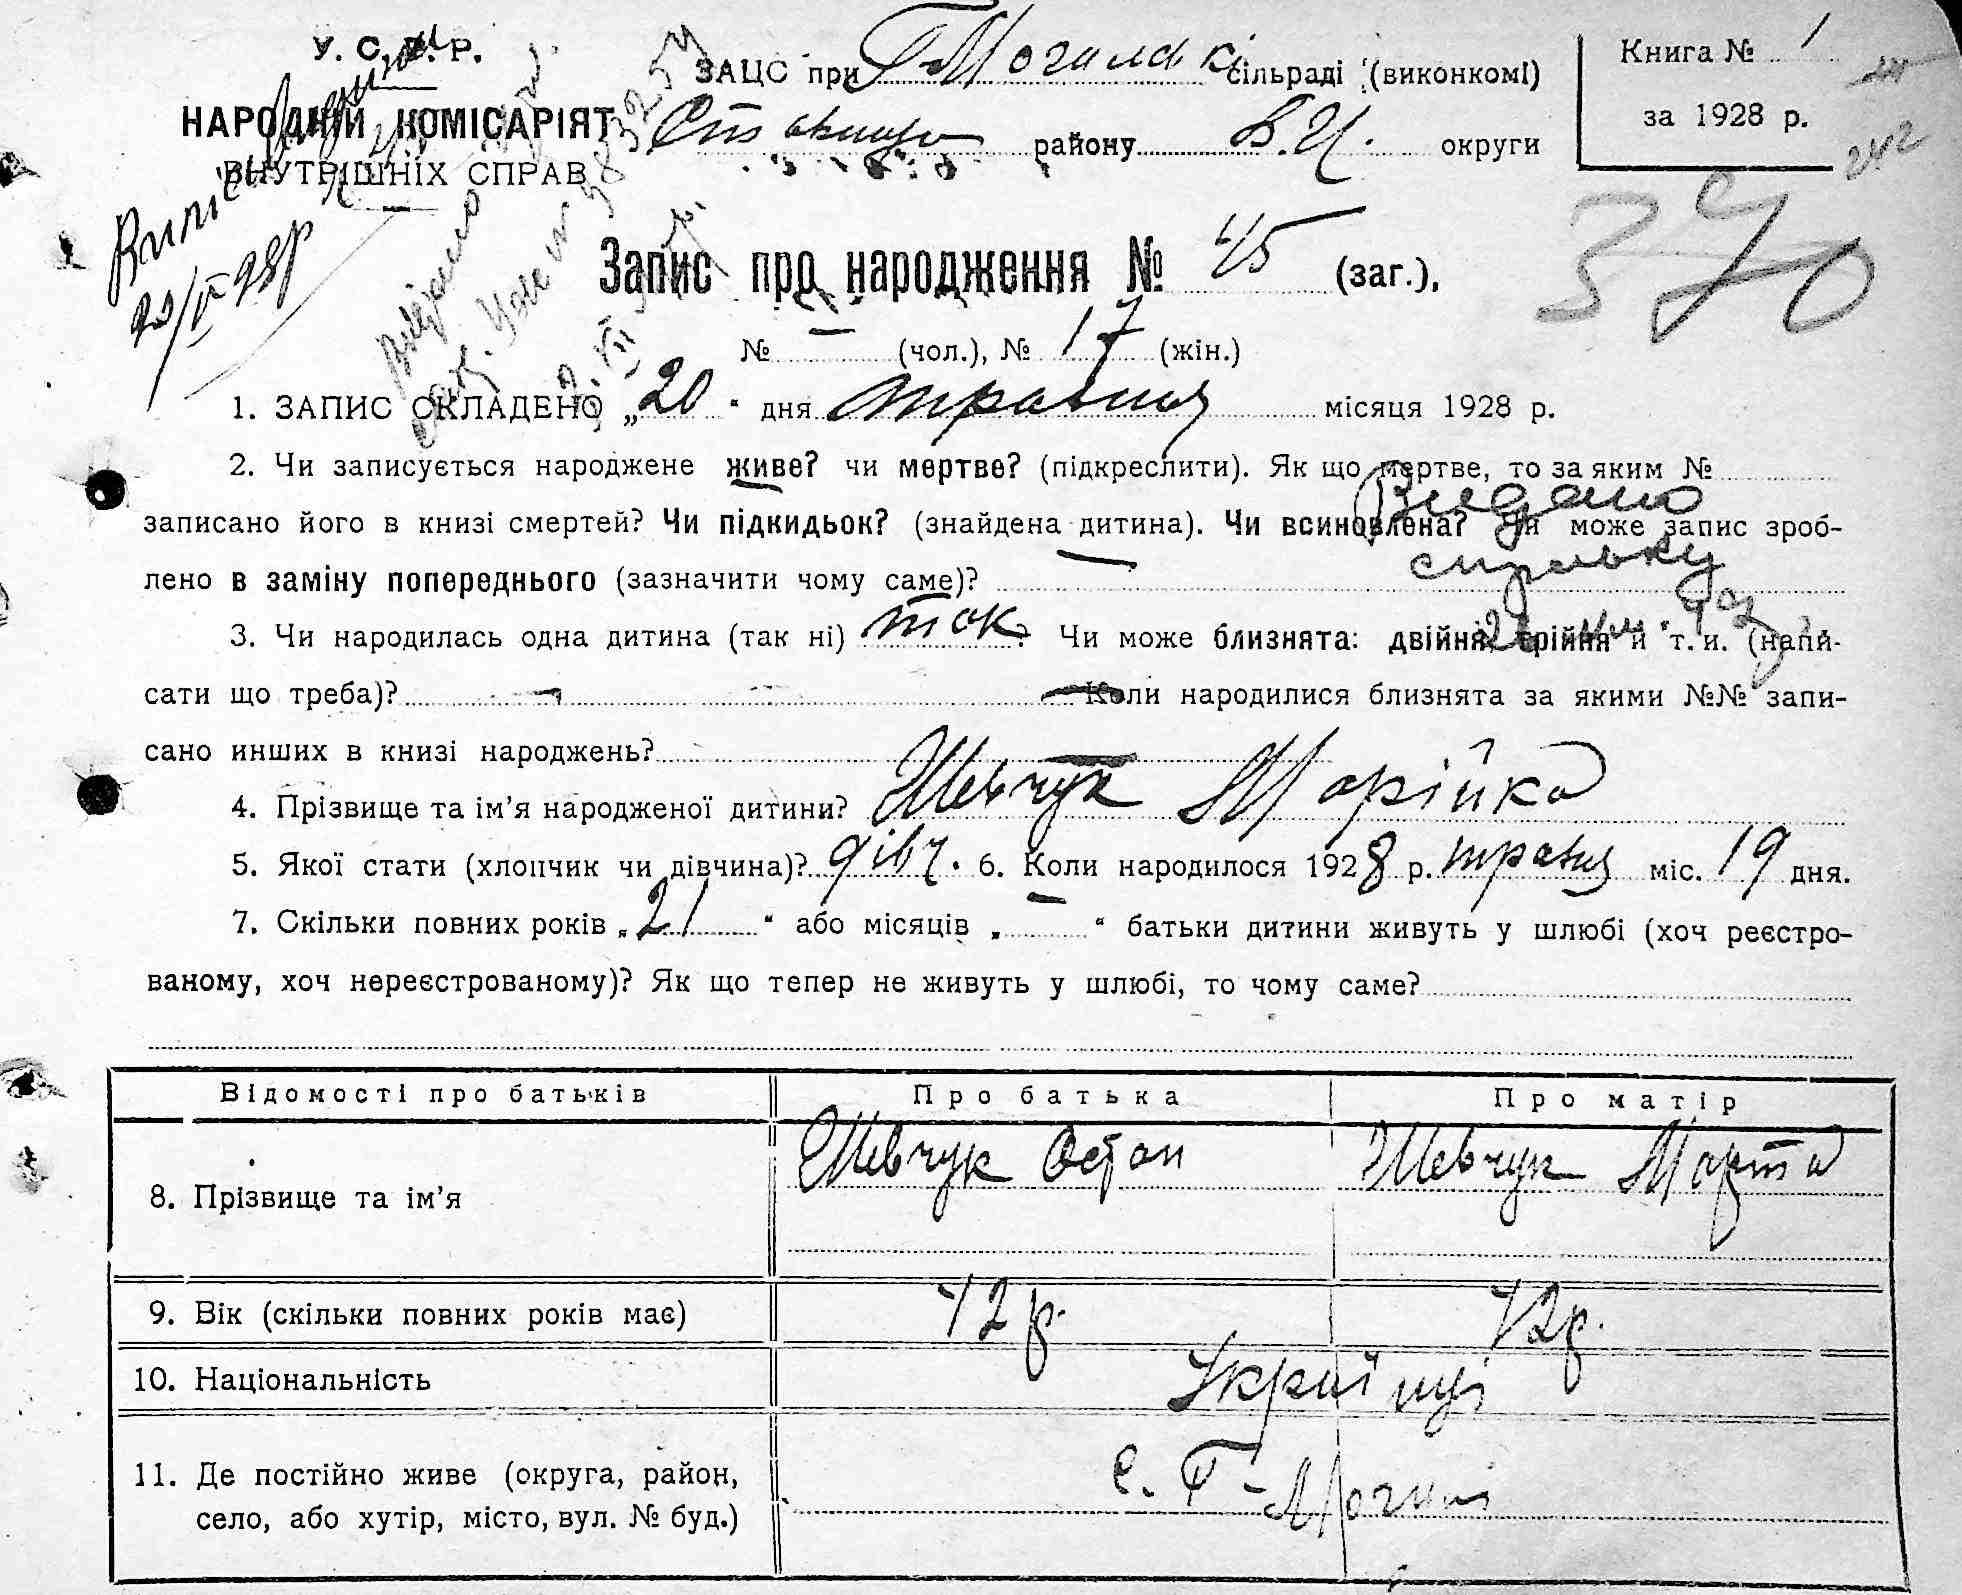 У. С. Р. Р.
НАРОДНІЙ КОМІСАРІЯТ
ВНУТРІШНІХ СПРАВ
ЗАЦС при Г Могилськ сільраді (виконкомі)
району Б.Ц. округи
Книга № 1
за 1928 р.
242
370
Запис про народження № 45 (заг.),
№ – (чол.), № 17 (жін.)
1. ЗАПИС СКЛАДЕНО „20" дня травня місяця 1928 р.
2. Чи записується народжене живе? чи мертве? (підкреслити). Як що мертве, то за яким №
Видано
записано його в книзі смертей? Чи підкидьок? (знайдена дитина). Чи всиновлена? Чи може запис зроб-
справку
лено в заміну попереднього (зазначити чому саме)? –
3. Чи народилась одна дитина (так ні) так ? Чи може близнята: двійня, трійня й т. и. (напи-
сати що треба)? – Коли народилися близнята за якими №№ запи-
сано инших в книзі народжень? –
4. Прізвище та ім’я народженої дитини? Шевчук Марійка
5. Якої стати (хлопчик чи дівчина)? дівч. 6. Коли народилося 1928 р. травня міс. 19 дня.
7. Скільки повних років „21" або місяців „–" батьки дитини живуть у шлюбі (хоч реєстро-
ваному, хоч нереєстрованому)? Як що тепер не живуть у шлюбі, то чому саме?
Відомості про батьків Про батька Про матір
8. Прізвище та ім’я Шевчук Остап Шевчук Марта
9. Вік (скільки повних років має) 42 р. 42 р.
10. Національність Українці
11. Де постійно живе (округа, район,
село, або хутір, місто, вул. № буд.)
с. Г-Могил